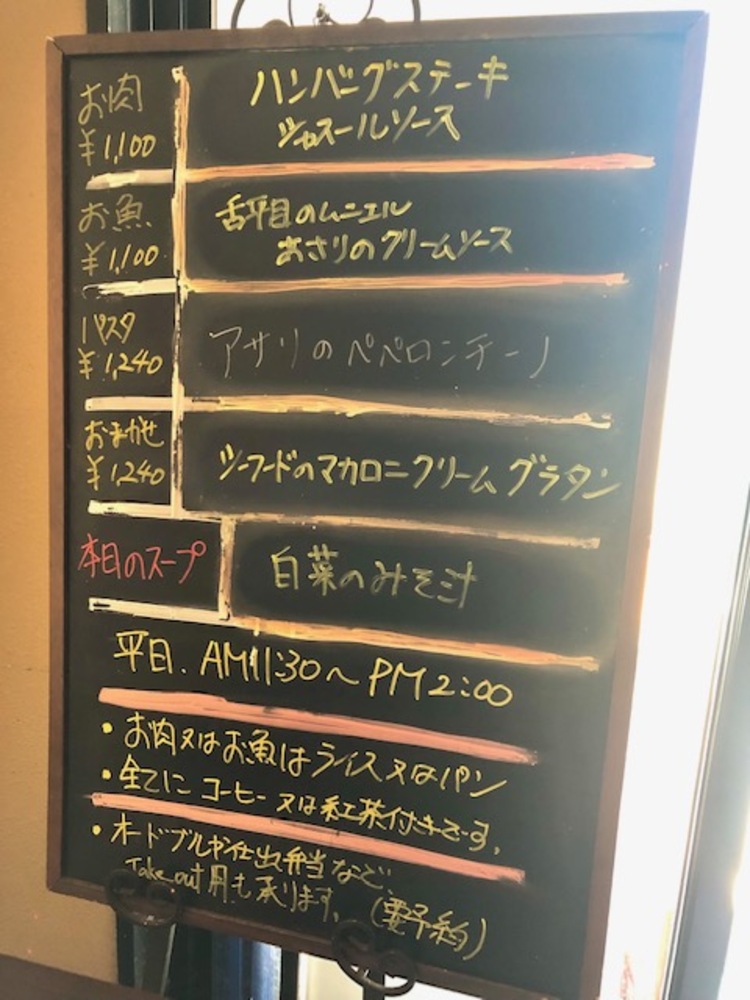 お肉
¥1,100
ハンバーグステーキ
シャスールソース
お魚
¥1,100
舌平目のムニエル
あさりのクリームソース
パスタ
¥1,240
アサリのペペロンチーノ
おまかせ
¥1,240
シーフードのマカロニクリームグラタン
本日のスープ
白菜のみそ汁
平日. AM11:30～PM2:00
・お肉又はお魚はライス又はパン
・全てに コーヒー又は紅茶付きです。
・オードブルや仕出弁当など、
Take out用も承ります。(要予約)